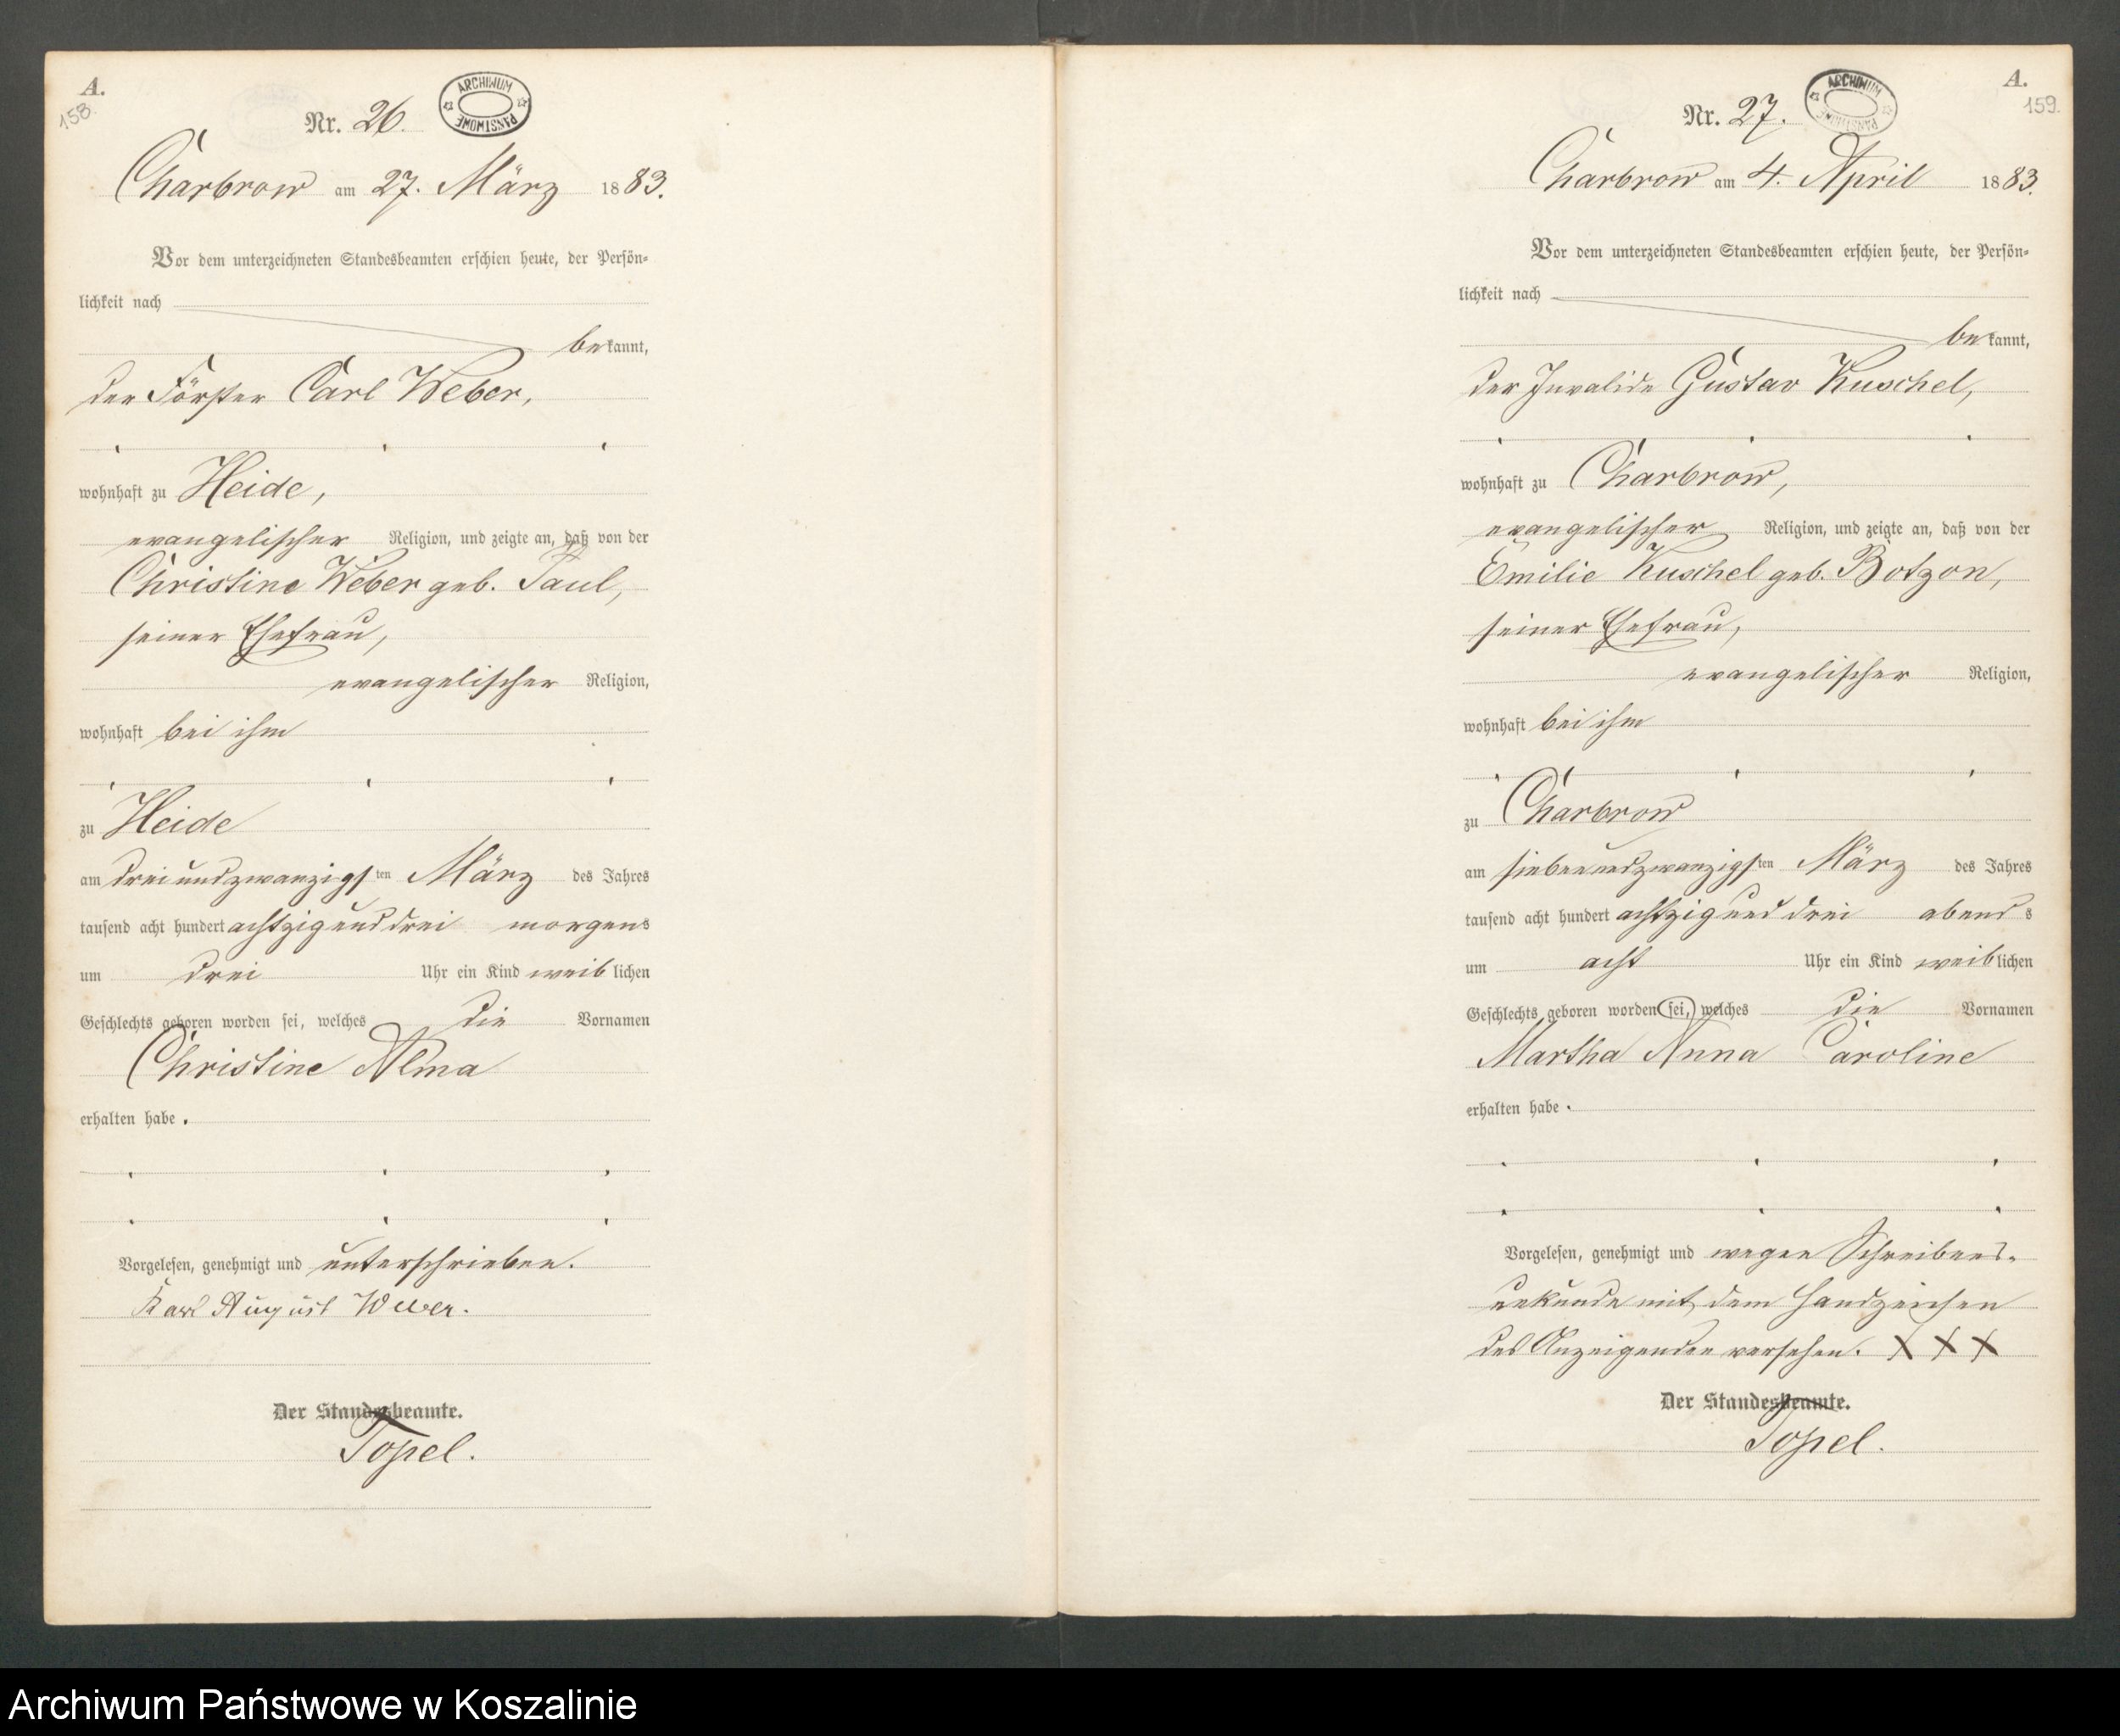 A.
158.
Nr. 26.
ARCHIWUM PAŃSTWOWE
Charbrow am 27. März 1883.
Vor dem unterzeichneten Standesbeamten erschien heute, der Persön-
lichkeit nach
bekannt,
der Förster Carl Weber,
wohnhaft zu Heide,
evangelischer Religion, und zeigte an, daß von der
Christine Weber geb. Paul,
seiner Ehefrau,
evangelischer Religion,
wohnhaft bei ihm
zu Heide
am dreiundzwanzigsten März des Jahres
tausend acht hundert achtzig und drei morgens
um drei Uhr ein Kind weiblichen
Geschlechts geboren worden sei, welches die Vornamen
Christine Alma
erhalten habe.
Vorgelesen, genehmigt und unterschrieben.
Karl August Weber.
Der Standesbeamte.
Topel.
A.
159.
Nr. 27.
ARCHIWUM PAŃSTWOWE
Charbrow am 4. April 1883.
Vor dem unterzeichneten Standesbeamten erschien heute, der Persön-
lichkeit nach
bekannt,
der Invalide Gustav Kuschel,
wohnhaft zu Charbrow,
evangelischer Religion, und zeigte an, daß von der
Emilie Kuschel geb. Botzon,
seiner Ehefrau,
evangelischer Religion,
wohnhaft bei ihm
zu Charbrow
am siebenundzwanzigsten März des Jahres
tausend acht hundert achtzig und drei abends
um acht Uhr ein Kind weiblichen
Geschlechts geboren worden sei, welches die Vornamen
Martha Anna Caroline
erhalten habe.
Vorgelesen, genehmigt und wegen Schreibens-
unkunde mit dem Handzeichen
des Anzeigenden versehen. XXX
Der Standesbeamte.
Topel.
Archiwum Państwowe w Koszalinie